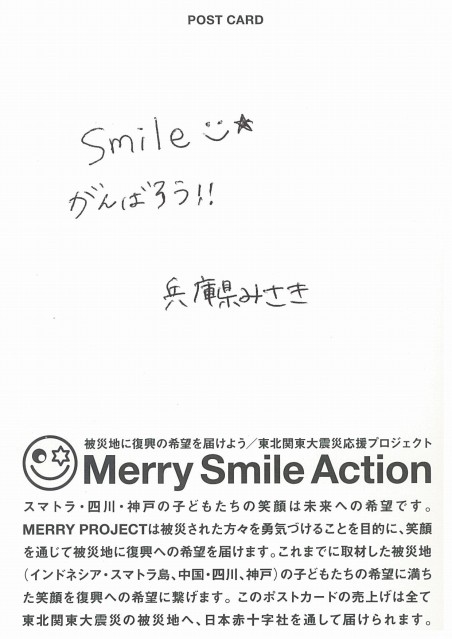 POST CARD
Smile
がんばろう!!
兵庫県みさき
被災地に復興の希望を届けよう／東北関東大震災応援プロジェクト
Merry Smile Action
スマトラ・四川・神戸の子どもたちの笑顔は未来への希望です。
MERRY PROJECTは被災された方々を勇気づけることを目的に、笑顔
を通じて被災地に復興への希望を届けます。これまでに取材した被災地
（インドネシア・スマトラ島、中国・四川、神戸）の子どもたちの希望に満ち
た笑顔を復興への希望に繋げます。このポストカードの売上げは全て
東北関東大震災の被災地へ、日本赤十字社を通して届けられます。